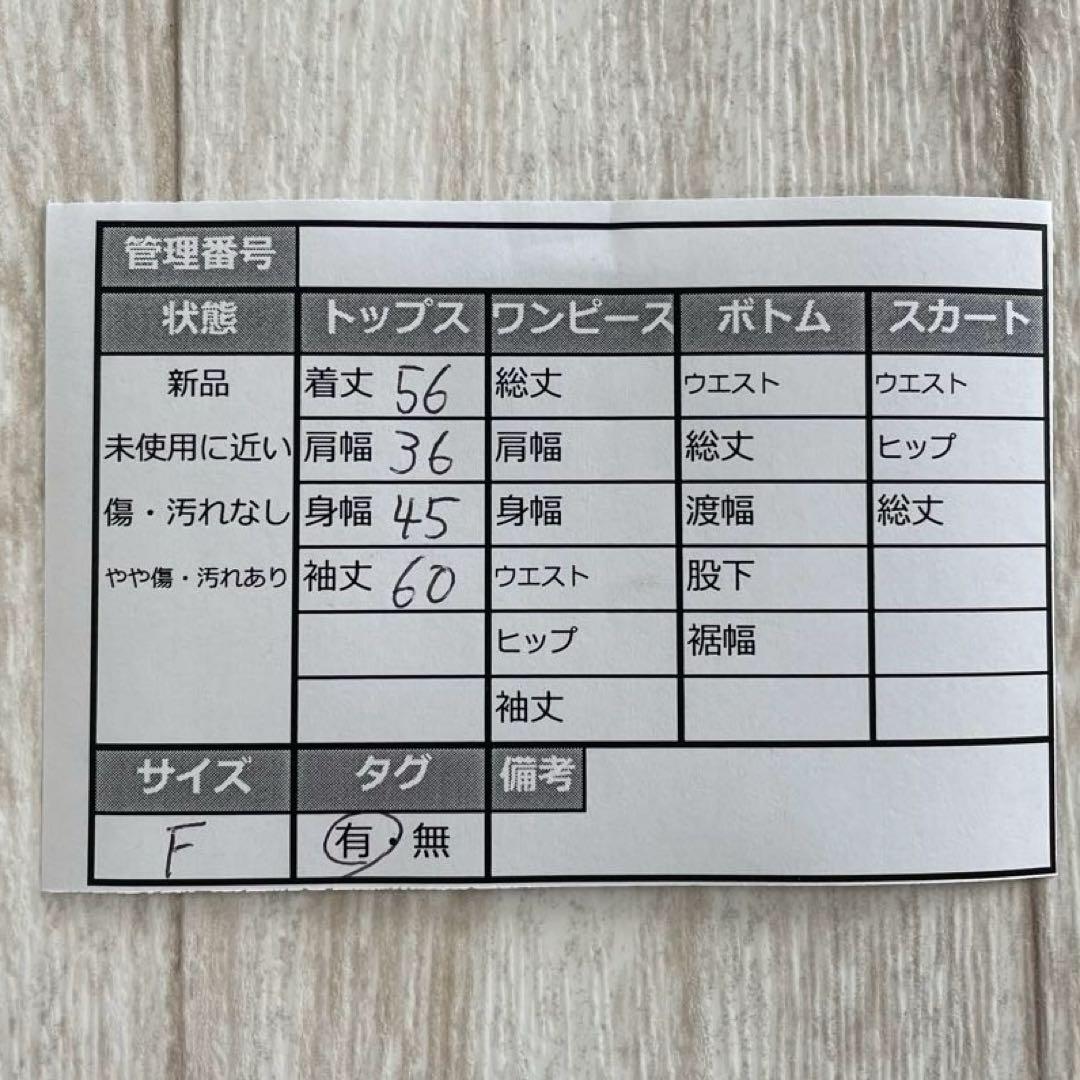 管理番号
状態 トップス ワンピース ボトム スカート
新品 着丈 56 総丈 ウエスト ウエスト
未使用に近い 肩幅 36 肩幅 総丈 ヒップ
傷・汚れなし 身幅 45 身幅 渡幅 総丈
やや傷・汚れあり 袖丈 60 ウエスト 股下
ヒップ 裾幅
袖丈
サイズ タグ 備考
F 有・無